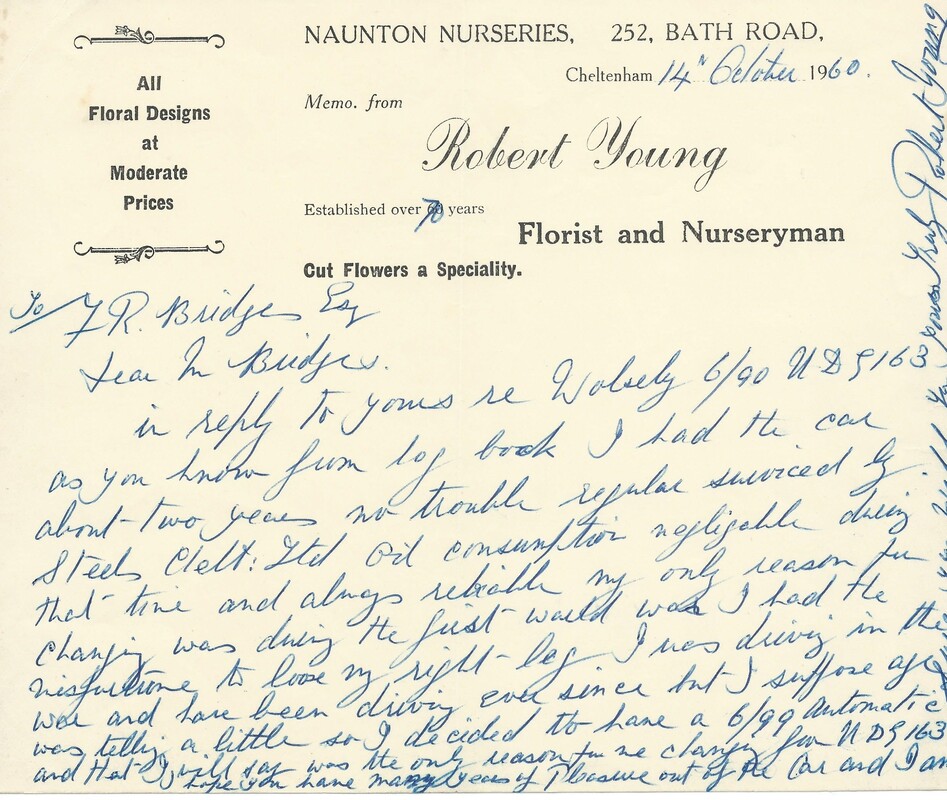 All
Floral Designs
at
Moderate
Prices
NAUNTON NURSERIES, 252, BATH ROAD,
Cheltenham 14th October 1960.
Memo. from
Robert Young
Established over 70 years
Florist and Nurseryman
Cut Flowers a Speciality.
To F R. Bridges Esq
Dear Mr Bridges.
in reply to yours re Wolsely 6/90 UDG163
as you know from log book I had the car
about two years no trouble regular surviced by
Steels Chelt: Ltd Oil consumption negligable during
that time and always reliable my only reason for
changing was during the first world war I had the
misfortune to loose my right leg I was driving in the
war and have been driving ever since but I suffose age
was telling a little so I decided to have a 6/99 Automatic
and that I will say was the only reason for me changing from UDG163
hope you have many years of Pleasure out of the Car and I am
yours Truly Robert Young